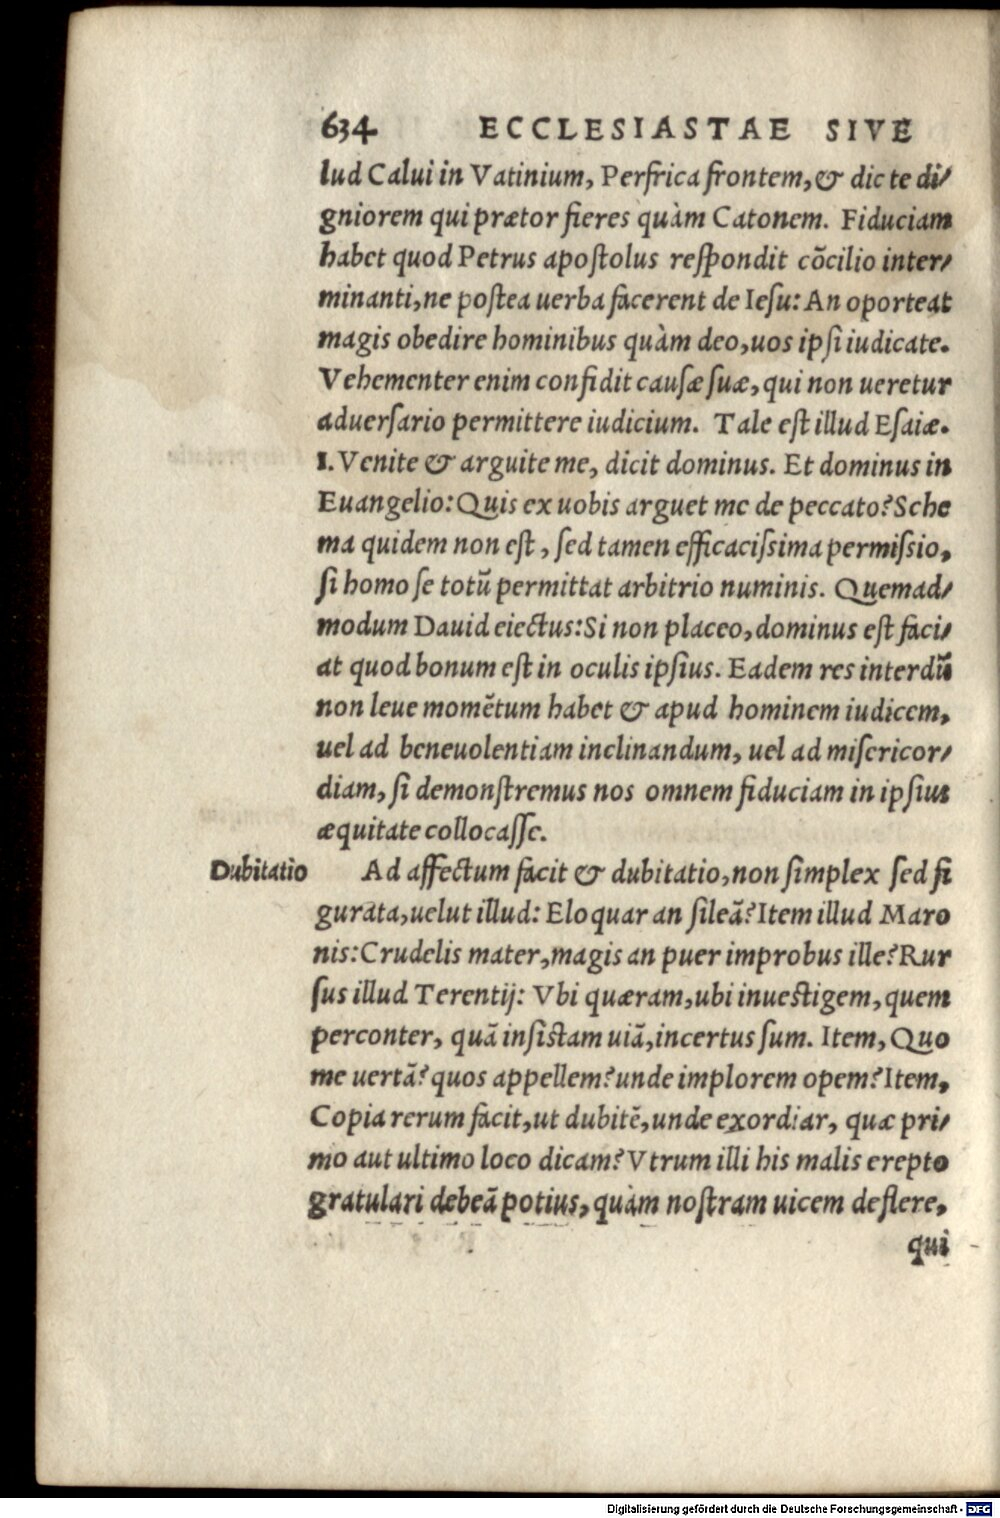 634 ECCLESIASTAE SIVE
lud Calui in Vatinium, Perfrica frontem, & dic te di/
gniorem qui prætor fieres quàm Catonem. Fiduciam
habet quod Petrus apoſtolus reſpondit cõcilio inter/
minanti, ne poſtea uerba facerent de Ieſu: An oporteat
magis obedire hominibus quàm deo, uos ipſi iudicate.
Vehementer enim confidit cauſæ ſuæ, qui non ueretur
aduerſario permittere iudicium. Tale eſt illud Eſaiæ.
I. Venite & arguite me, dicit dominus. Et dominus in
Euangelio: Quis ex uobis arguet me de peccato? Sche
ma quidem non eſt, ſed tamen efficaciſsima permiſsio,
ſi homo ſe totũ permittat arbitrio numinis. Quemad/
modum Dauid eiectus: Si non placeo, dominus eſt faci/
at quod bonum eſt in oculis ipſius. Eadem res interdũ
non leue momẽtum habet & apud hominem iudicem,
uel ad beneuolentiam inclinandum, uel ad miſericor/
diam, ſi demonſtremus nos omnem fiduciam in ipſius
æquitate collocaſſe.
Dubitatio
Ad affectum facit & dubitatio, non ſimplex ſed fi
gurata, uelut illud: Eloquar an ſileã? Item illud Maro
nis: Crudelis mater, magis an puer improbus ille? Rur
ſus illud Terentij: Vbi quæram, ubi inueſtigem, quem
perconter, quã inſiſtam uiã, incertus ſum. Item, Quo
me uertã? quos appellem? unde implorem opem? Item,
Copia rerum facit, ut dubitẽ, unde exordiar, quæ pri/
mo aut ultimo loco dicam? Vtrum illi his malis erepto
gratulari debeã potius, quàm noſtram uicem deflere,
qui
Digitalisierung gefördert durch die Deutsche Forschungsgemeinschaft - DFG